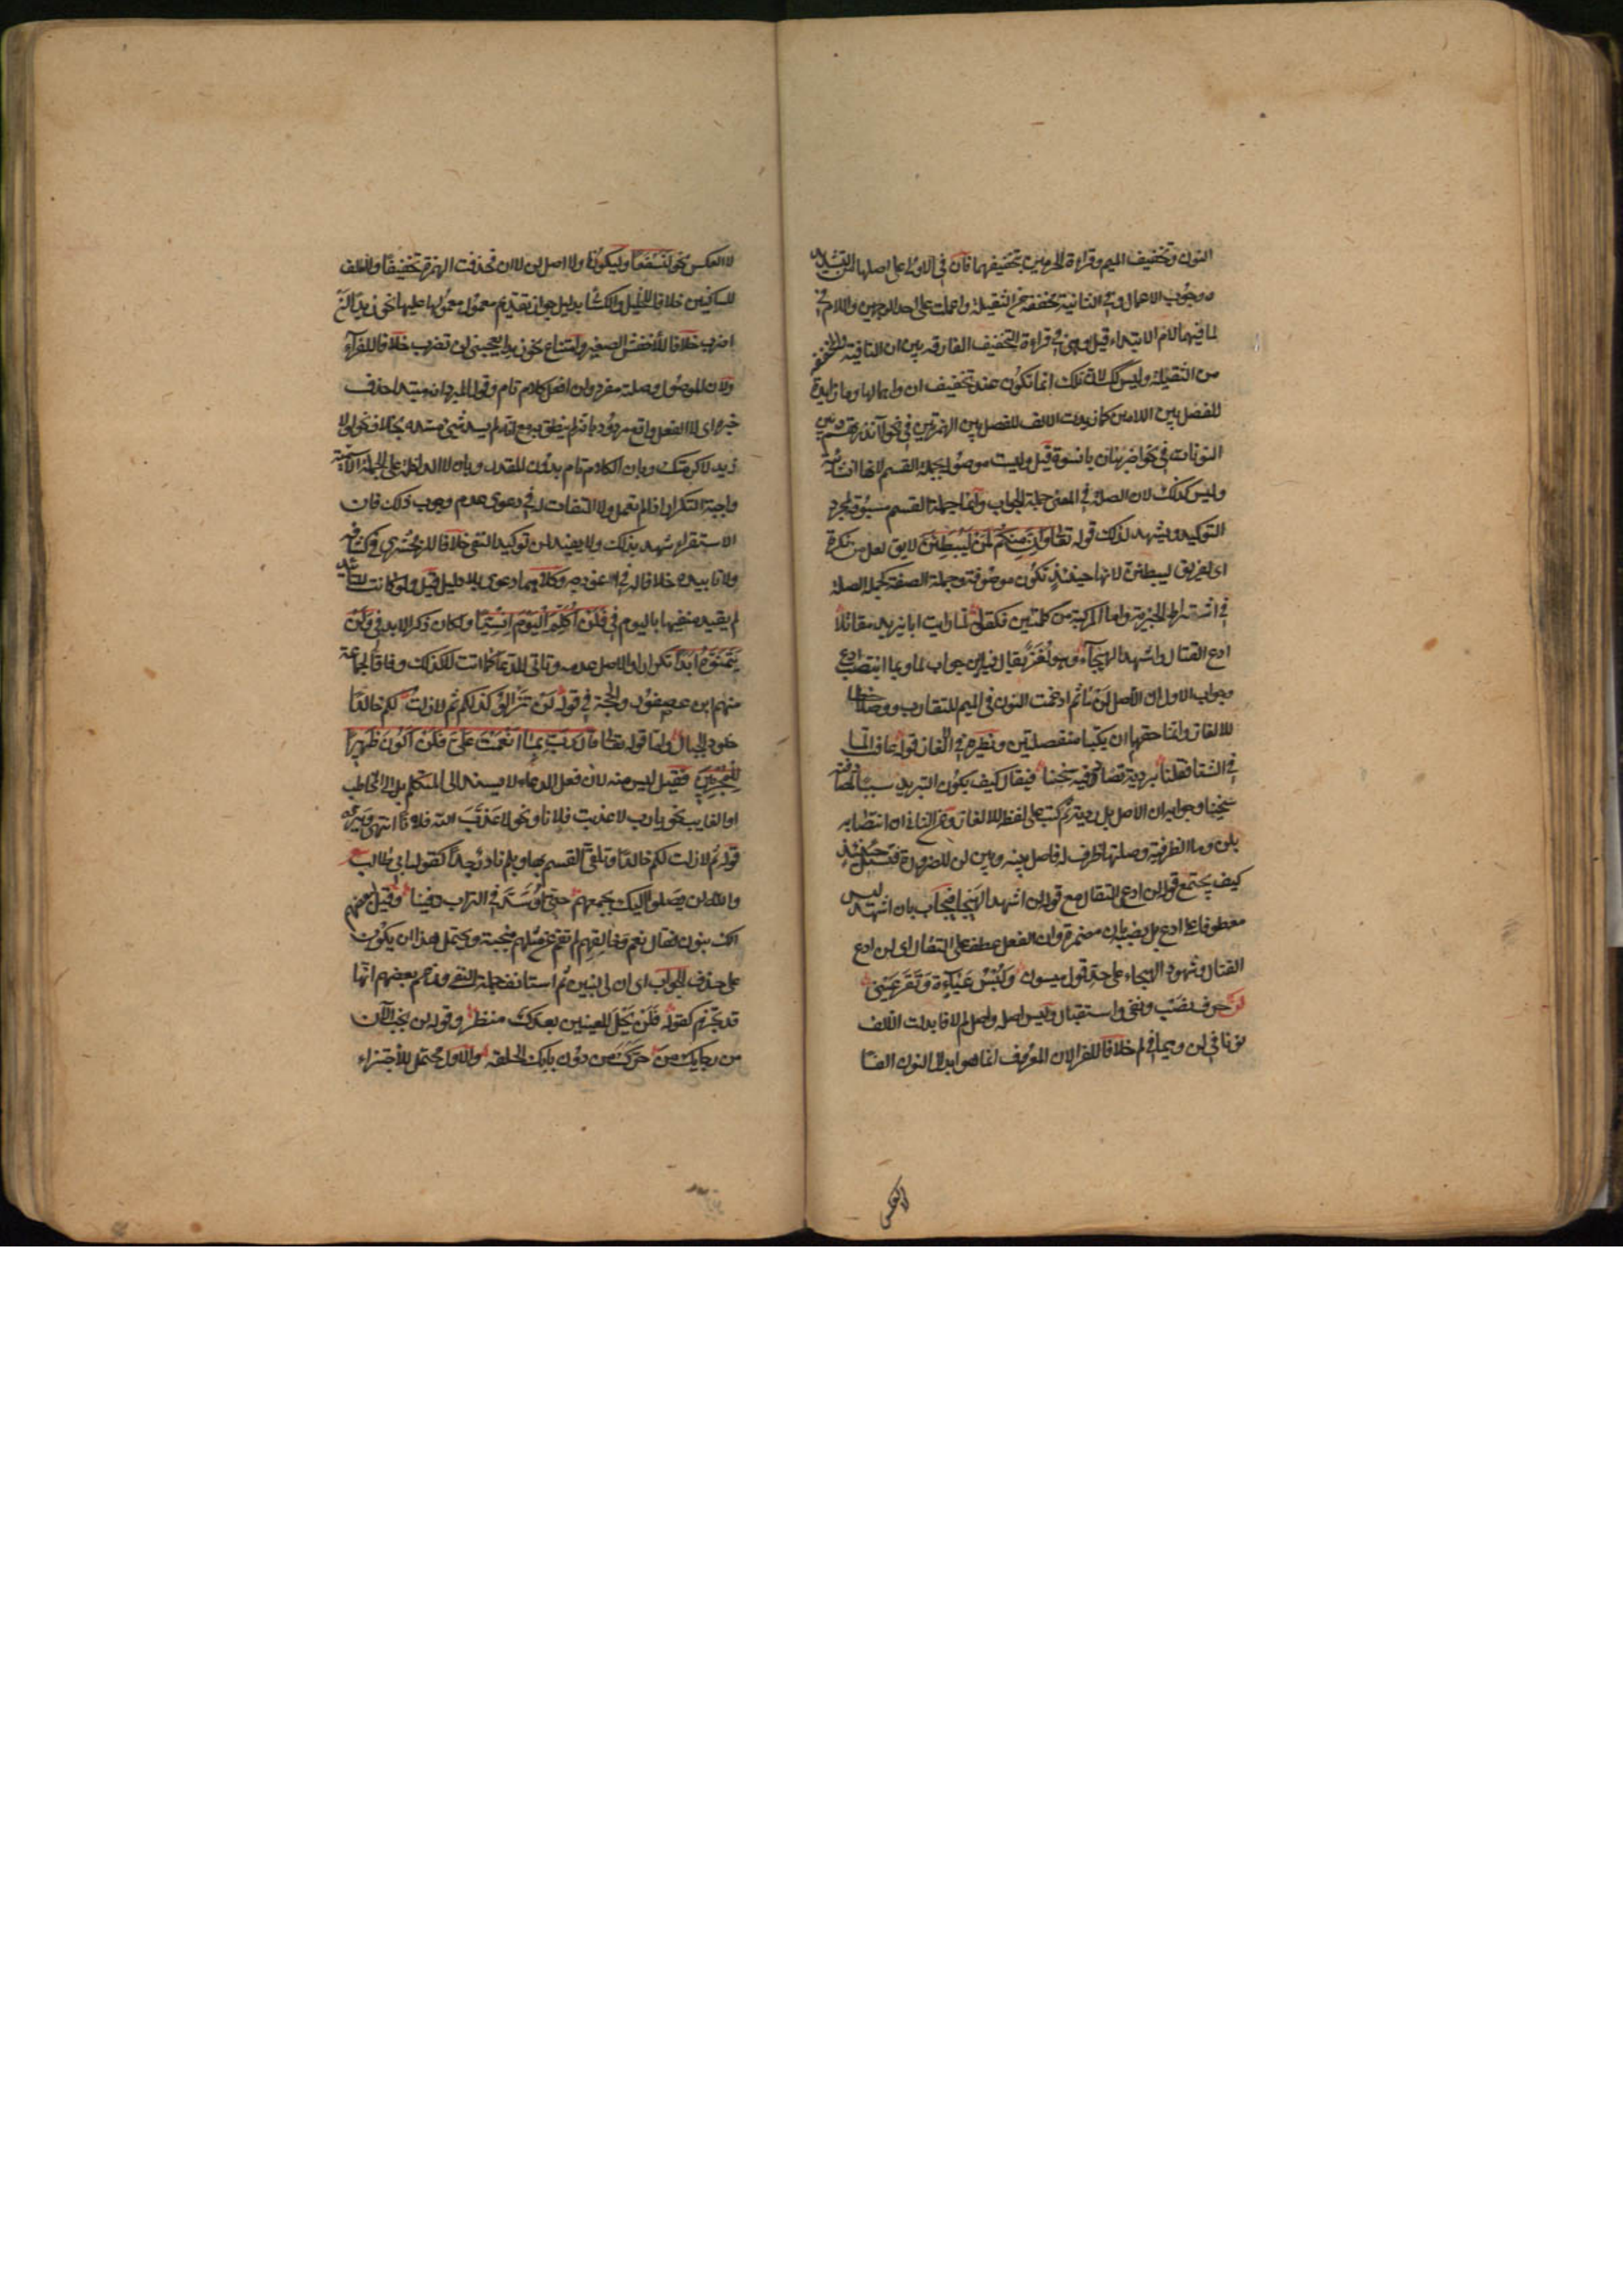 النون وتخفيف الميم وقراءة الحرميين بتخفيفهما فان في الاولى على اصلها من التشديد
ووجوب الاعمال وفي الثانية مخففة من الثقيلة واعملت على احد الوجهين واللام في
لما فيهما لام الابتداء قيل وهي في قراءة التخفيف الفارقة بين ان النافية والمخففة
من الثقيلة وليس كذلك لان تلك انما تكون عند تخفيف ان واهمالها وما زايدة
للفصل بين اللامين كما زيدت الالف للفصل بين الهمزتين في نحو أأنذرتهم وبين
النونات في نحو اضربنان يا نسوة قيل وليست موصولة بجملة القسم لانها انشائية
وليس كذلك لان الصلة في المعنى جملة الجواب وانما جملة القسم مسوقة لمجرد
التوكيد ويشهد لذلك قوله تعالى وان منكم لمن ليبطئن لا يق لعل من نكرة
اى لفريق ليبطئن لانها حينئذ تكون موصوفة وجملة الصفة كجملة الصلة
في اشتراط الخبرية واما المركبة من كلمتين فكقوله لما رايت ابا يزيد مقاتلا
ادع القتال واشهد الهيجاء وهو لغز يقال فيه اين جواب لما وبما انتصب ادع
وجواب الاول ان الاصل لن ما ثم ادغمت النون في الميم للتقارب ووصلا خطا
للالغاز وانما حقهما ان يكتبا منفصلتين ونظيره في الالغاز قوله عافت الما
في الشتا فقلنا برديه تصادفيه سخينا فيقال كيف يكون التبريد سببا لمصادفته
سخينا وجوابه ان الاصل بل رديه ثم كتب على لفظه للالغاز وعن الثاني ان انتصابه
بلن وما الظرفية وصلتها ظرف له فاصل بينه وبين لن للضرورة فيسئل حينئذ
كيف يجتمع قوله لن ادع القتال مع قوله لن اشهد الهيجا فيجاب بان اشهد ليس
معطوفا على ادع بل نصبه بان مضمرة وان والفعل عطف على القتال اى لن ادع
القتال وشهود الهيجاء على حد قول ميسون ولبس عباءة وتقر عيني
لن حرف نصب ونفي واستقبال وليس اصله واصل لم لا فابدلت الالف
نونا في لن وميما في لم خلافا للفرا لان المعروف انما هو ابدال النون الفا
لا العكس
لا العكس نحو لنسفعا وليكونا ولا اصل لن لا ان فحذفت الهمزة تخفيفا والالف
للساكنين خلافا للخليل والكسائي بدليل جواز تقديم معمول معمولها عليها نحو زيدا لن
اضرب خلافا للاخفش الصغير وامتناع نحو زيدا يعجبني ان تضرب خلافا للفراء
ولان الموصول وصلته مفرد ولن افعل كلام تام وقول المبرد انه مبتدا حذف
خبره اى لا الفعل واقع مردود بانه لم ينطق به مع انه لم يسد شيء مسده بخلاف نحو لولا
زيد لاكرمتك وبان الكلام تام بدون المقدر وبان لا الداخلة على الجملة الاسمية
واجبة التكرار اذا لم تعمل ولا التفات له في دعوى عدم وجوب ذلك فان
الاستقراء شهد بذلك ولا يفيد لن توكيد النفي خلافا للزمخشري في كشافه
ولا تابيده خلافا له في انموذجه وكلاهما دعوى بلا دليل قيل ولو كانت للتابيد
لم يقيد منفيها باليوم في فلن اكلم اليوم انسيا ولكان ذكر الابد في ولن
يتمنوه ابدا تكرارا والاصل عدمه وتاتي للدعا كما اتت لا كذلك وفاقا لجماعة
منهم ابن عصفور والحجة في قوله لن تزالوا كذلكم ثم لا زلت لكم خالدا
خلود الجبال واما قوله تعالى قال رب بما انعمت على فلن اكون ظهيرا
للمجرمين فقيل ليس منه لان فعل الدعاء لا يسند الى المتكلم بل الى المخاطب
او الغايب نحو يا رب لا عذبت فلانا ونحو لا عذب الله فلانا انتهى ويرده
قوله ثم لا زلت لكم خالدا وتلقي القسم بها وبلم نادر جدا كقول ابي طالب
والله لن يصلوا اليك بجمعهم حتى اوسد في التراب دفينا وقيل لبعضهم
الك بنون فقال نعم وخالقهم لم تقم عن مثلهم منجبة ويحتمل هذا ان يكون
على حذف الجواب اى ان لى لبنين ثم استانف جملة النفي وزعم بعضهم انها
قد تجزم كقوله فلن يحل للعينين بعدك منظر وقوله لن يخب الآن
من رجايك من حرك من دون بابك الحلقه والاول محتمل للاجتزاء